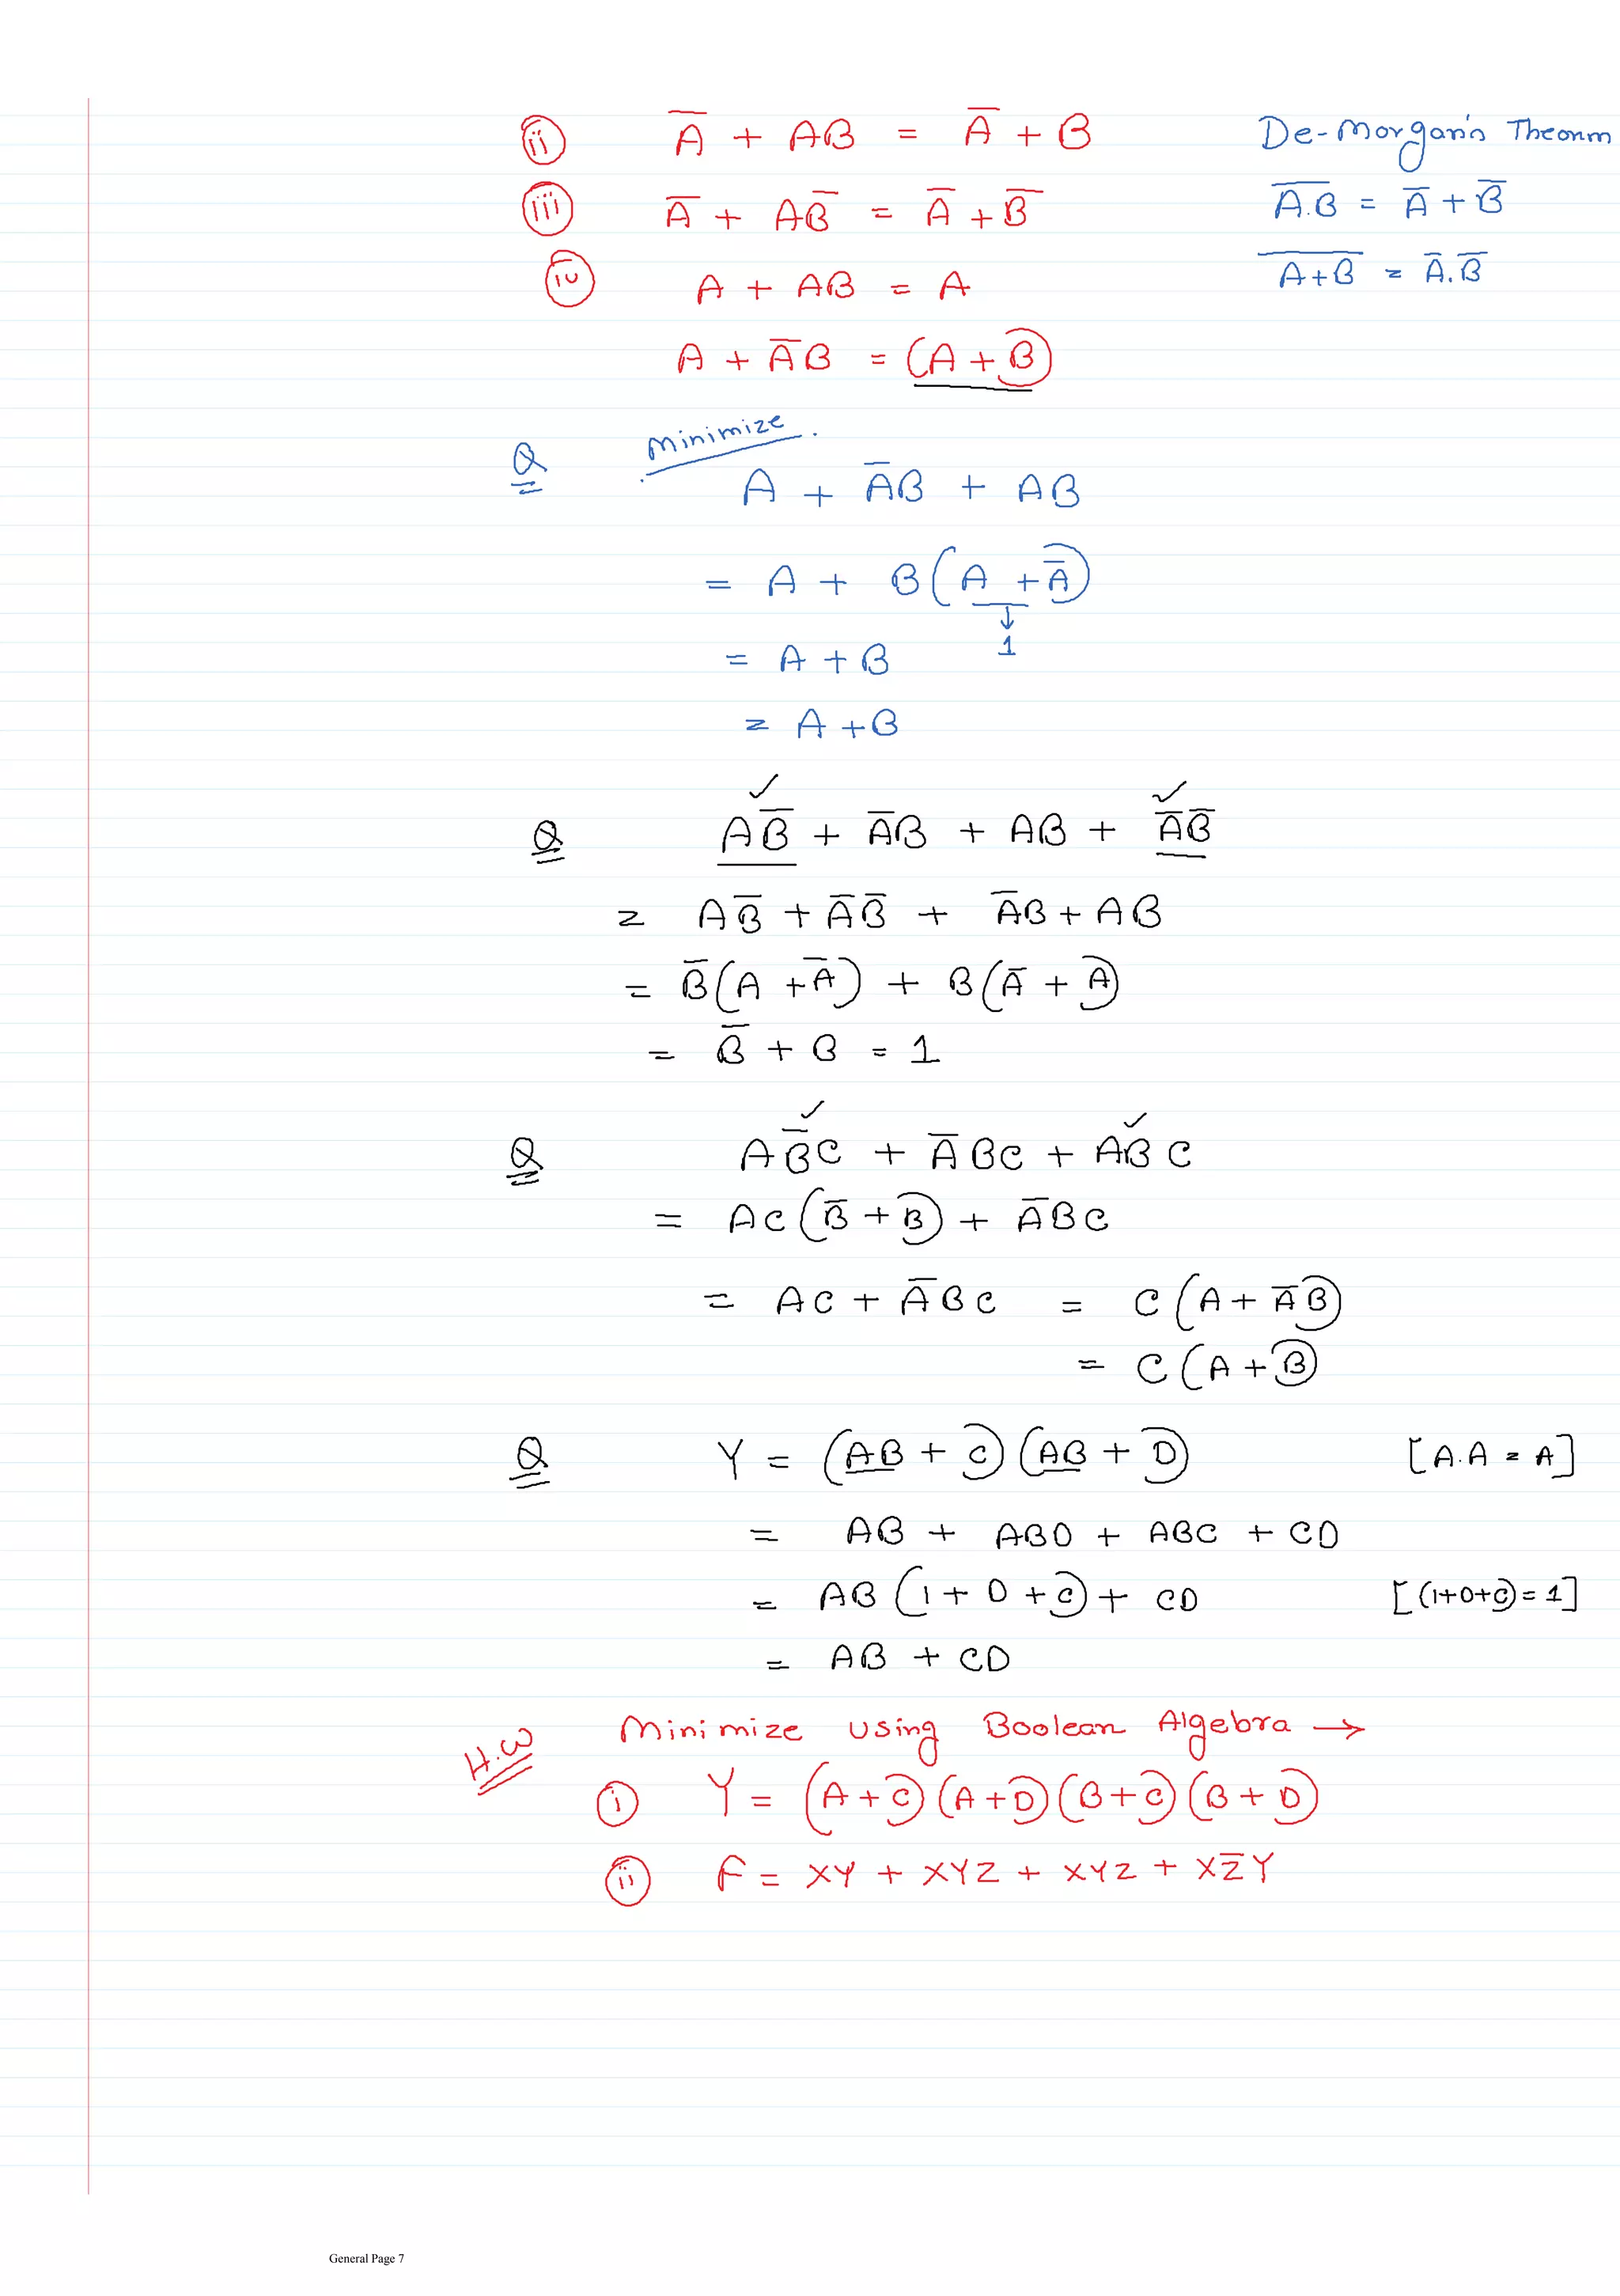 (ii) A̅ + AB = A̅ + B
De-Morgan's Theorm
(iii) A̅ + AB̅ = A̅ + B̅
A̅.̅B̅ = A̅ + B̅
(iv) A + AB = A
A̅+̅B̅ = A̅.B̅
A + A̅B = (A + B)
Q Minimize.
A + A̅B + AB
= A + B(A + A̅)
↓
1
= A + B
= A + B
Q AB̅ + A̅B + AB + A̅B̅
= AB̅ + A̅B̅ + A̅B + AB
= B̅(A + A̅) + B(A̅ + A)
= B̅ + B = 1
Q AB̅C + A̅BC + ABC
= AC(B̅ + B) + A̅BC
= AC + A̅BC = C(A + A̅B)
= C(A + B)
Q Y = (AB + C)(AB + D) [A.A = A]
= AB + ABD + ABC + CD
= AB(1 + D + C) + CD [(1+D+C) = 1]
= AB + CD
H.W Minimize using Boolean Algebra →
(i) Y = (A + C)(A + D)(B + C)(B + D)
(ii) F = XY + XYZ + XYZ + XZ̅Y
General Page 7